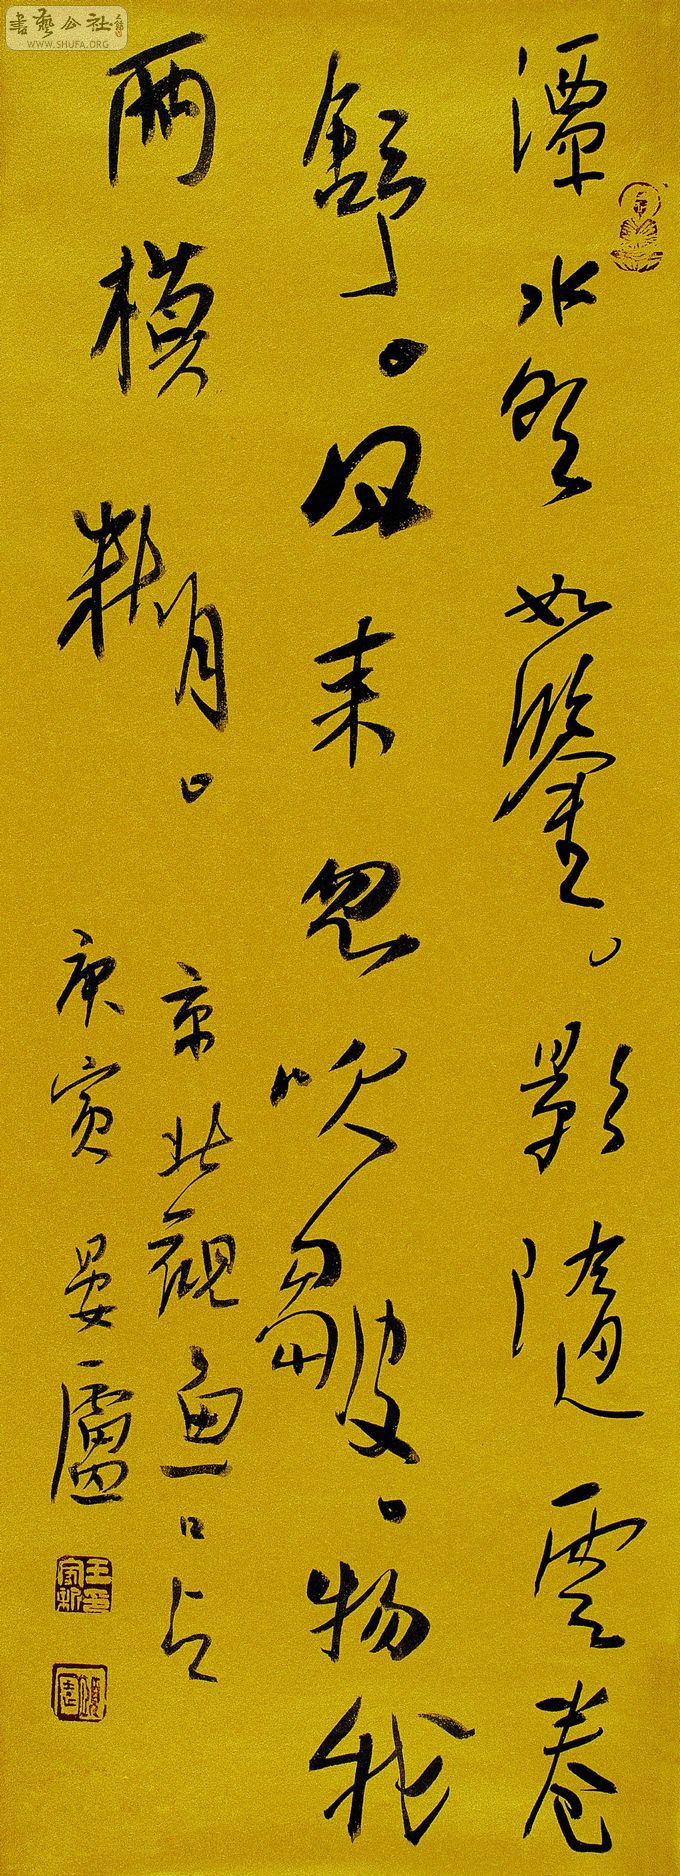 書藝公社
WWW.SHUFA.ORG
潭水如鑒。影隨雲卷
舒。风来忽吹皺。物我
兩模糊。
京北觀魚口占
庚寅晏廬
王家新印